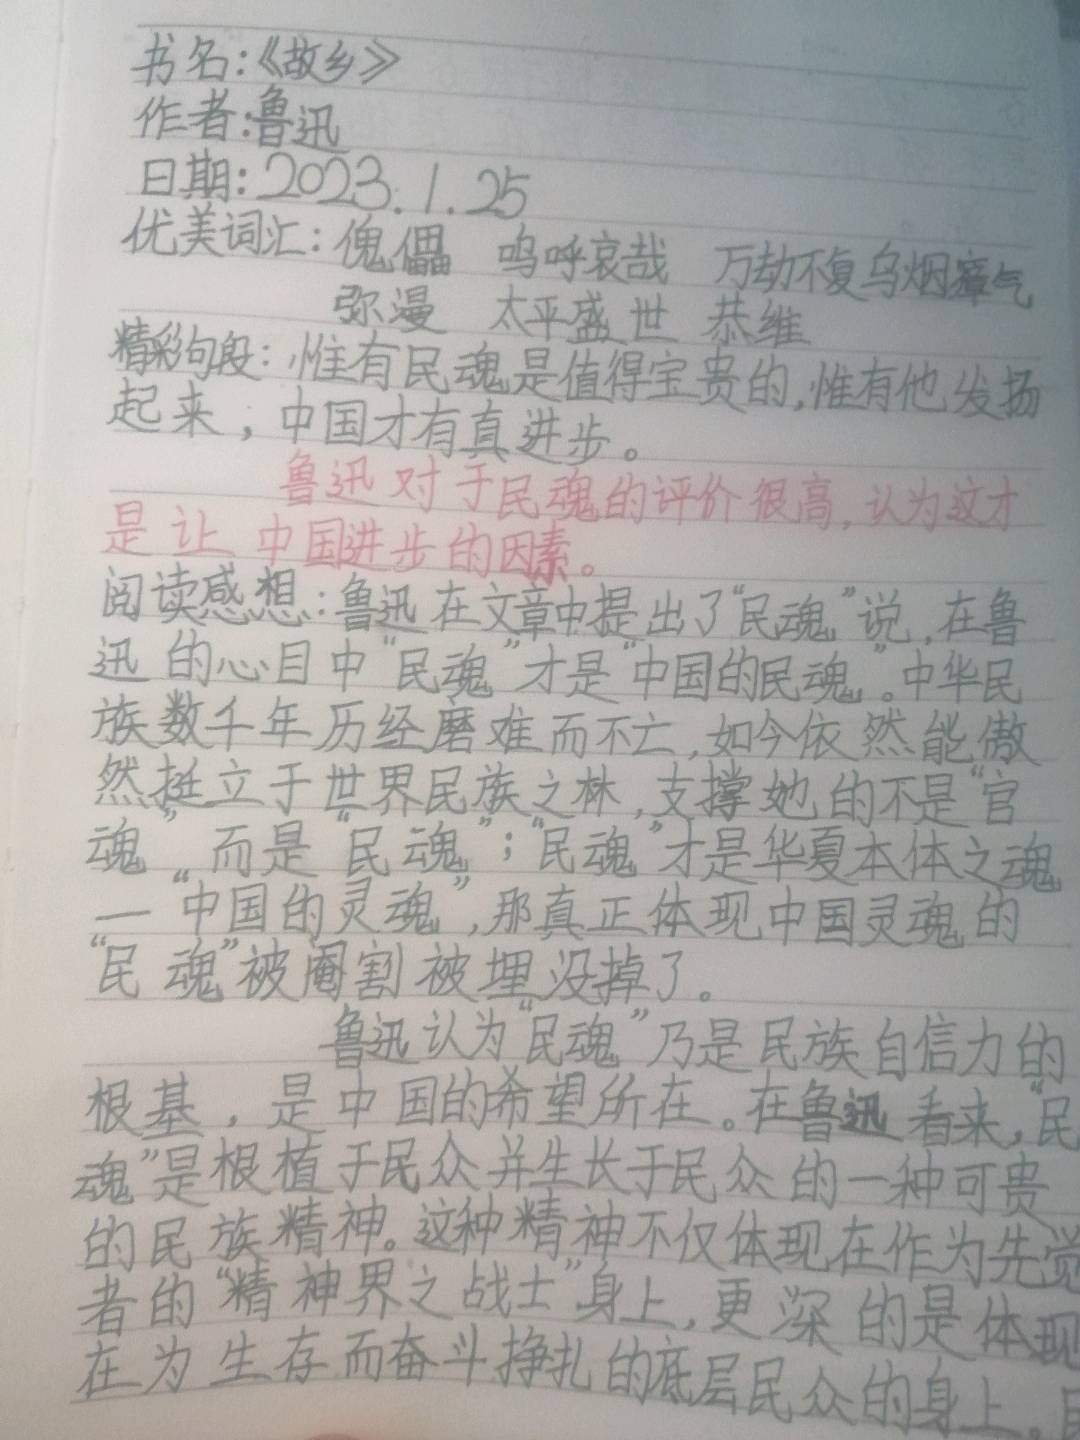 书名:《故乡》
作者:鲁迅
日期:2023.1.25
优美词汇:傀儡 呜呼哀哉 万劫不复 乌烟瘴气
弥漫 太平盛世 恭维
精彩句段:惟有民魂是值得宝贵的,惟有他发扬
起来,中国才有真进步。
鲁迅对于民魂的评价很高,认为这才
是让中国进步的因素。
阅读感想:鲁迅在文章中提出了“民魂”说,在鲁
迅的心目中“民魂”才是“中国的民魂”。中华民
族数千年历经磨难而不亡,如今依然能傲
然挺立于世界民族之林,支撑她的不是“官
魂”而是“民魂”;“民魂”才是华夏本体之魂
—“中国的灵魂”,那真正体现中国灵魂的
“民魂”被阉割被埋没掉了。
鲁迅认为“民魂”乃是民族自信力的
根基,是中国的希望所在。在鲁迅看来,“民
魂”是根植于民众并生长于民众的一种可贵
的民族精神。这种精神不仅体现在作为先觉
者的“精神界之战士”身上,更深的是体现
在为生存而奋斗挣扎的底层民众的身上。